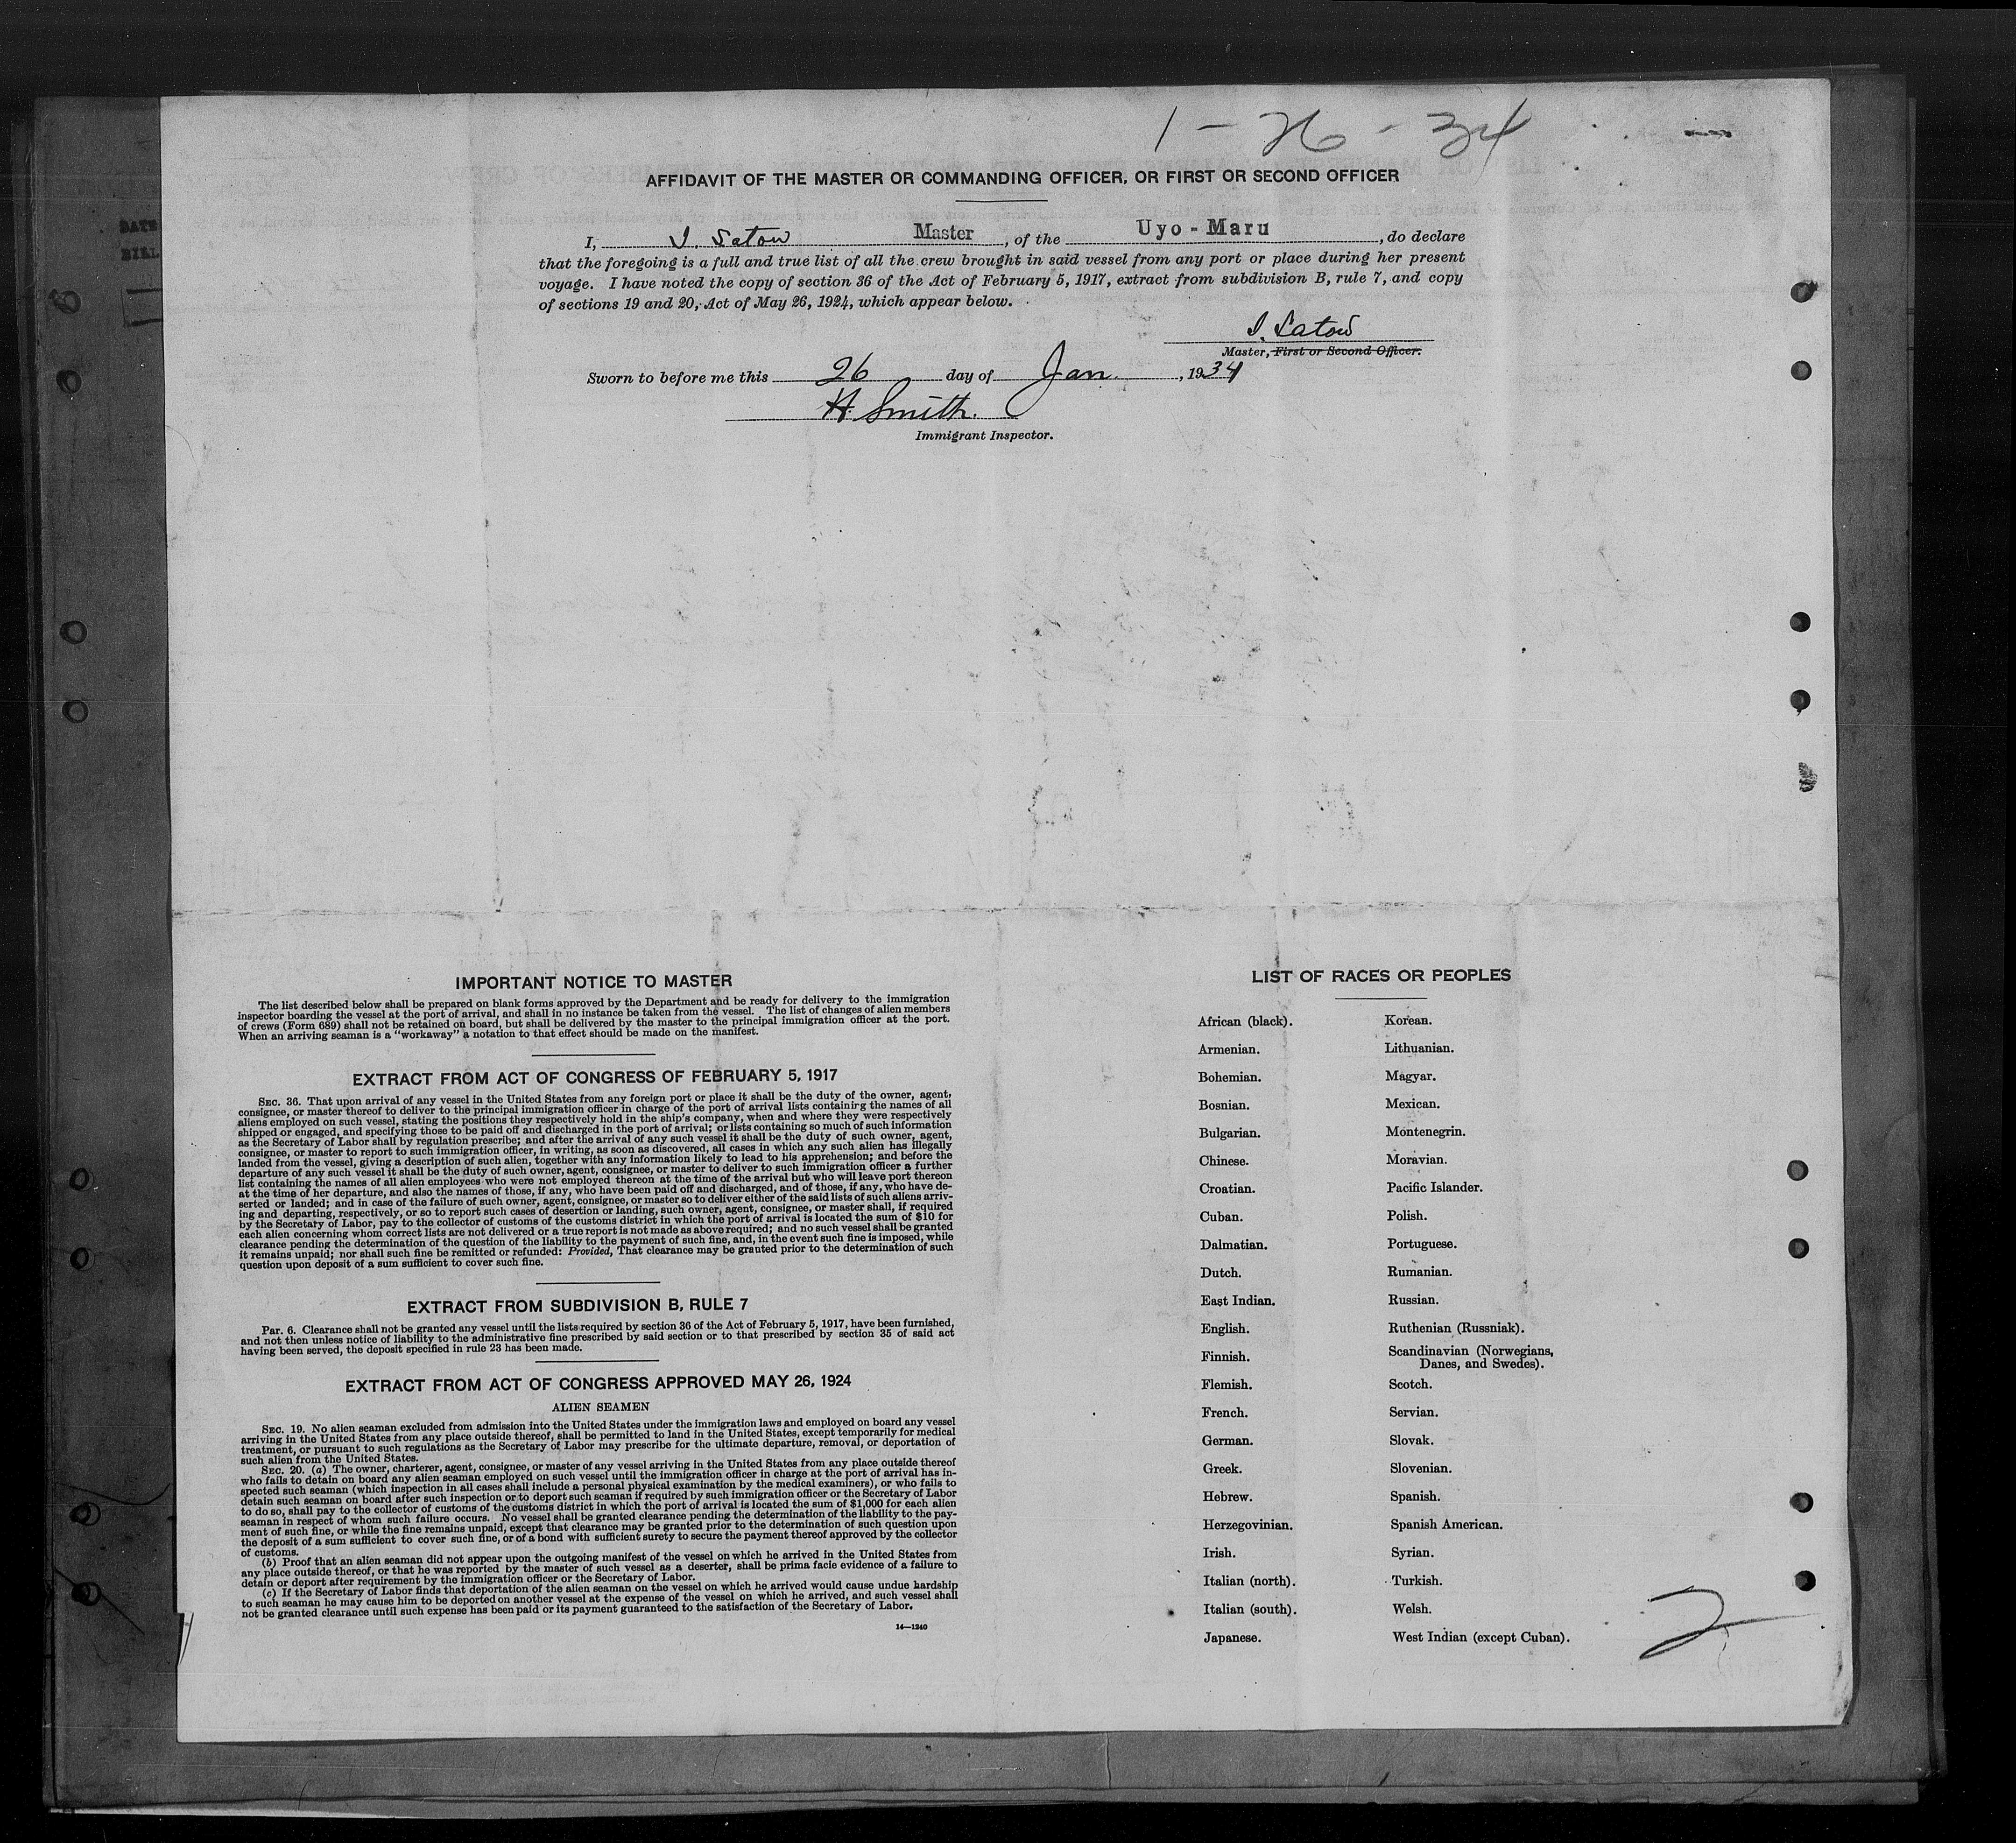 1-26-34
AFFIDAVIT OF THE MASTER OR COMMANDING OFFICER, OR FIRST OR SECOND OFFICER
I, I. Satow Master, of the Uyo-Maru, do declare
that the foregoing is a full and true list of all the crew brought in said vessel from any port or place during her present
voyage. I have noted the copy of section 36 of the Act of February 5, 1917, extract from subdivision B, rule 7, and copy
of sections 19 and 20, Act of May 26, 1924, which appear below.
I. Satow
Master, First or Second Officer.
Sworn to before me this 26 day of Jan., 1934
H. Smith.
Immigrant Inspector.
IMPORTANT NOTICE TO MASTER
The list described below shall be prepared on blank forms approved by the Department and be ready for delivery to the immigration
inspector boarding the vessel at the port of arrival, and shall in no instance be taken from the vessel. The list of changes of alien members
of crews (Form 689) shall not be retained on board, but shall be delivered by the master to the principal immigration officer at the port.
When an arriving seaman is a "workaway" a notation to that effect should be made on the manifest.
EXTRACT FROM ACT OF CONGRESS OF FEBRUARY 5, 1917
SEC. 36. That upon arrival of any vessel in the United States from any foreign port or place it shall be the duty of the owner, agent,
consignee, or master thereof to deliver to the principal immigration officer in charge of the port of arrival lists containing the names of all
aliens employed on such vessel, stating the positions they respectively hold in the ship's company, when and where they were respectively
shipped or engaged, and specifying those to be paid off and discharged in the port of arrival; or lists containing so much of such information
as the Secretary of Labor shall by regulation prescribe; and after the arrival of any such vessel it shall be the duty of such owner, agent,
consignee, or master to report to such immigration officer, in writing, as soon as discovered, all cases in which any such alien has illegally
landed from the vessel, giving a description of such alien, together with any information likely to lead to his apprehension; and before the
departure of any such vessel it shall be the duty of such owner, agent, consignee, or master to deliver to such immigration officer a further
list containing the names of all alien employees who were not employed thereon at the time of the arrival but who will leave port thereon
at the time of her departure, and also the names of those, if any, who have been paid off and discharged, and of those, if any, who have de-
serted or landed; and in case of the failure of such owner, agent, consignee, or master so to deliver either of the said lists of such aliens arriv-
ing and departing, respectively, or so to report such cases of desertion or landing, such owner, agent, consignee, or master shall, if required
by the Secretary of Labor, pay to the collector of customs of the customs district in which the port of arrival is located the sum of $10 for
each alien concerning whom correct lists are not delivered or a true report is not made as above required; and no such vessel shall be granted
clearance pending the determination of the question of the liability to the payment of such fine, and, in the event such fine is imposed, while
it remains unpaid; nor shall such fine be remitted or refunded: Provided, That clearance may be granted prior to the determination of such
question upon deposit of a sum sufficient to cover such fine.
EXTRACT FROM SUBDIVISION B, RULE 7
Par. 6. Clearance shall not be granted any vessel until the lists required by section 36 of the Act of February 5, 1917, have been furnished,
and not then unless notice of liability to the administrative fine prescribed by said section or to that prescribed by section 35 of said act
having been served, the deposit specified in rule 23 has been made.
EXTRACT FROM ACT OF CONGRESS APPROVED MAY 26, 1924
ALIEN SEAMEN
SEC. 19. No alien seaman excluded from admission into the United States under the immigration laws and employed on board any vessel
arriving in the United States from any place outside thereof, shall be permitted to land in the United States, except temporarily for medical
treatment, or pursuant to such regulations as the Secretary of Labor may prescribe for the ultimate departure, removal, or deportation of
such alien from the United States.
SEC. 20. (a) The owner, charterer, agent, consignee, or master of any vessel arriving in the United States from any place outside thereof
who fails to detain on board any alien seaman employed on such vessel until the immigration officer in charge at the port of arrival has in-
spected such seaman (which inspection in all cases shall include a personal physical examination by the medical examiners), or who fails to
detain such seaman on board after such inspection or to deport such seaman if required by such immigration officer or the Secretary of Labor
to do so, shall pay to the collector of customs of the customs district in which the port of arrival is located the sum of $1,000 for each alien
seaman in respect of whom such failure occurs. No vessel shall be granted clearance pending the determination of the liability to the pay-
ment of such fine, or while the fine remains unpaid, except that clearance may be granted prior to the determination of such question upon
the deposit of a sum sufficient to cover such fine, or of a bond with sufficient surety to secure the payment thereof approved by the collector
of customs.
(b) Proof that an alien seaman did not appear upon the outgoing manifest of the vessel on which he arrived in the United States from
any place outside thereof, or that he was reported by the master of such vessel as a deserter, shall be prima facie evidence of a failure to
detain or deport after requirement by the immigration officer or the Secretary of Labor.
(c) If the Secretary of Labor finds that deportation of the alien seaman on the vessel on which he arrived would cause undue hardship
to such seaman he may cause him to be deported on another vessel at the expense of the vessel on which he arrived, and such vessel shall
not be granted clearance until such expense has been paid or its payment guaranteed to the satisfaction of the Secretary of Labor.
14—1240
LIST OF RACES OR PEOPLES
African (black).
Armenian.
Bohemian.
Bosnian.
Bulgarian.
Chinese.
Croatian.
Cuban.
Dalmatian.
Dutch.
East Indian.
English.
Finnish.
Flemish.
French.
German.
Greek.
Hebrew.
Herzegovinian.
Irish.
Italian (north).
Italian (south).
Japanese.
Korean.
Lithuanian.
Magyar.
Mexican.
Montenegrin.
Moravian.
Pacific Islander.
Polish.
Portuguese.
Rumanian.
Russian.
Ruthenian (Russniak).
Scandinavian (Norwegians,
Danes, and Swedes).
Scotch.
Servian.
Slovak.
Slovenian.
Spanish.
Spanish American.
Syrian.
Turkish.
Welsh.
West Indian (except Cuban).
2
DATE